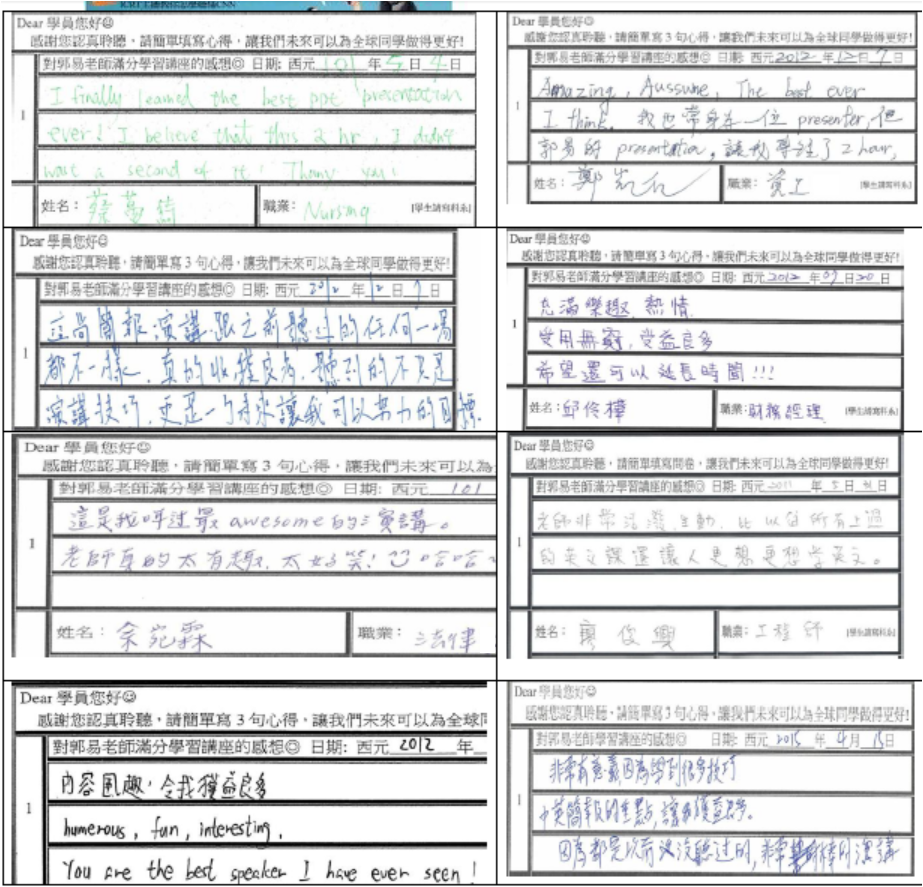 ICRT主播教你怎麼聽懂CNN
Dear 學員您好☺
感謝您認真聆聽，請簡單填寫心得，讓我們未來可以為全球同學做得更好!
對郭易老師滿分學習講座的感想◎ 日期: 西元 101 年 5 月 4 日
1
I finally learned the best ppt presentation
ever! I believe that this 2 hr, I didn't
wast a second of it! Thany you!
姓名：蔡蔓綺
職業：Nursing
[學生請寫科系]
Dear 學員您好☺
感謝您認真聆聽，請簡單寫 3 句心得，讓我們未來可以為全球同學做得更好!
對郭易老師滿分學習講座的感想◎ 日期: 西元 2012 年 12 月 7 日
1
Amazing, Aussume, The best ever
I think. 我也常身在一位 presenter, 但
郭易的 presentation, 讓我專注了 2 hour,
姓名：鄭
職業：資工
[學生請寫科系]
Dear 學員您好☺
感謝您認真聆聽，請簡單寫 3 句心得，讓我們未來可以為全球同學做得更好!
對郭易老師滿分學習講座的感想◎ 日期: 西元 2012 年 12 月 7 日
1
這尚簡報演講跟之前聽过的任何一場
都不一樣, 真的收穫良多, 聽到的不只是
演講技巧, 更是一个未來讓我可以努力的目標.
Dear 學員您好☺
感謝您認真聆聽，請簡單寫 3 句心得，讓我們未來可以為全球同學做得更好!
對郭易老師滿分學習講座的感想◎ 日期: 西元 2012 年 07 月 20 日
1
充滿樂趣, 熱情
受用無窮, 受益良多
希望還可以延長時間!!!
姓名：邱俊樺
職業：財務經理
[學生請寫科系]
Dear 學員您好☺
感謝您認真聆聽，請簡單寫 3 句心得，讓我們未來可以為
對郭易老師滿分學習講座的感想◎ 日期: 西元 101
1
這是我听过最 awesome 的演講。
老師真的太有趣, 太好笑! 哈哈
姓名：余宛霖
職業：法律
Dear 學員您好☺
感謝您認真聆聽，請簡單填寫問卷，讓我們未來可以為全球同學做得更好!
對郭易老師滿分學習講座的感想◎ 日期: 西元 2011 年 5 月 日
1
老師非常活潑生動, 比以往所有上過
的英文課還讓人更想更想学英文。
姓名：廖俊興
職業：工程師
[學生請寫科系]
Dear 學員您好☺
感謝您認真聆聽，請簡單寫 3 句心得，讓我們未來可以為全球同
對郭易老師滿分學習講座的感想◎ 日期: 西元 2012 年
1
內容風趣, 令我獲益良多
humerous, fun, interesting.
You are the best speaker I have ever seen!
Dear 學員您好☺
感謝您認真聆聽，請簡單寫 3 句心得，讓我們未來可以為全球同學做得更好!
對郭易老師滿分學習講座的感想◎ 日期: 西元 2015 年 4 月 15 日
1
非常有意義因為學到很多技巧
英簡報的重點, 讓我獲益良多。
因為都是以前沒聽过的, 非常棒的演講